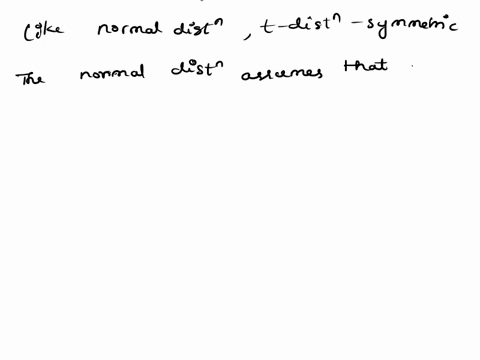 Like normal distⁿ, t-distⁿ - symmetric
The normal distⁿ assumes that